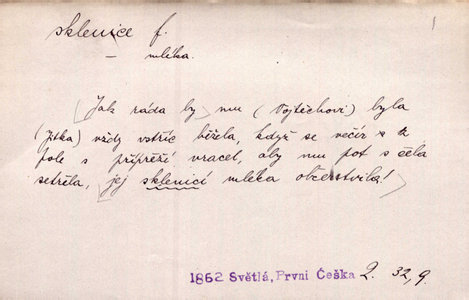 1
sklenice f.
– mléka.
(Jak ráda by) mu (Vojtěchovi) byla
(Jitka) vždy vstříc běžela, když se večír z
pole s přípřeží vracel, aby mu pot s čela
setřela, (jej sklenicí mléka občerstvila!)
1862 Světlá, První Češka 2. 32, 9.